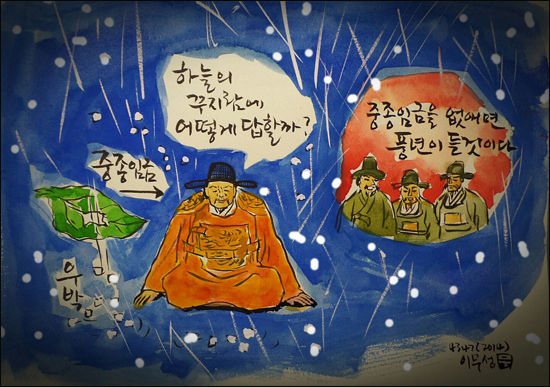 하늘의
꾸지람에
어떻게 답할까?
중종임금을 없애면
풍년이 들것이다
중종임금
우박
4347(2014)
이무성